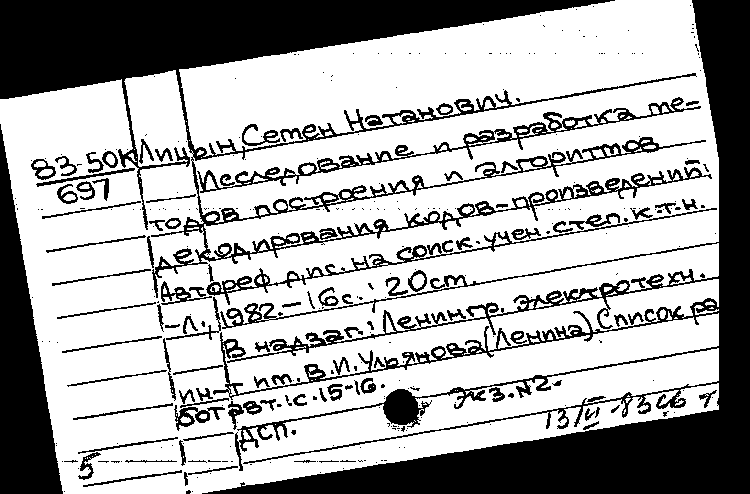 83-50К Лицын, Семен Натанович.
697 Исследование и разработка ме-
тодов построения и алгоритмов
декодирования кодов-произведений:
Автореф. дис. на соиск. учен. степ. к.т.н.
-Л., 1982.-16с.; 20см.
В надзаг.: Ленингр. электротехн.
ин-т им. В.И. Ульянова (Ленина). Список ра
бот авт.: с.15-16.
Экз.N2.
ДСП.
5 13/VI-83